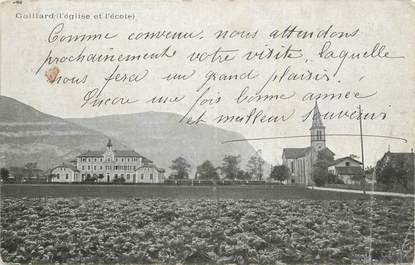 Gaillard (l'église et l'école)
Comme convenu, nous attendons
prochainement votre visite, laquelle
nous fera un grand plaisir!
Encore une fois bonne année
et meilleur souvenir